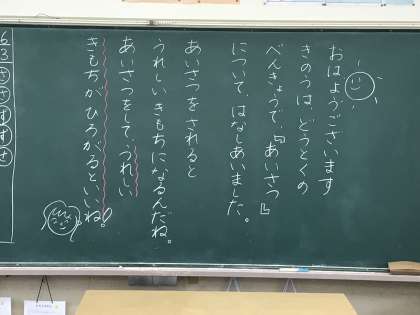 おはようございます
きのうは、どうとくの
べんきょうで、『あいさつ』
について、はなしあいました。
あいさつをされると
うれしいきもちになるんだね。
あいさつをして、うれしい
きもちがひろがるといいね。
6
3
さ
さ
す
す
せ